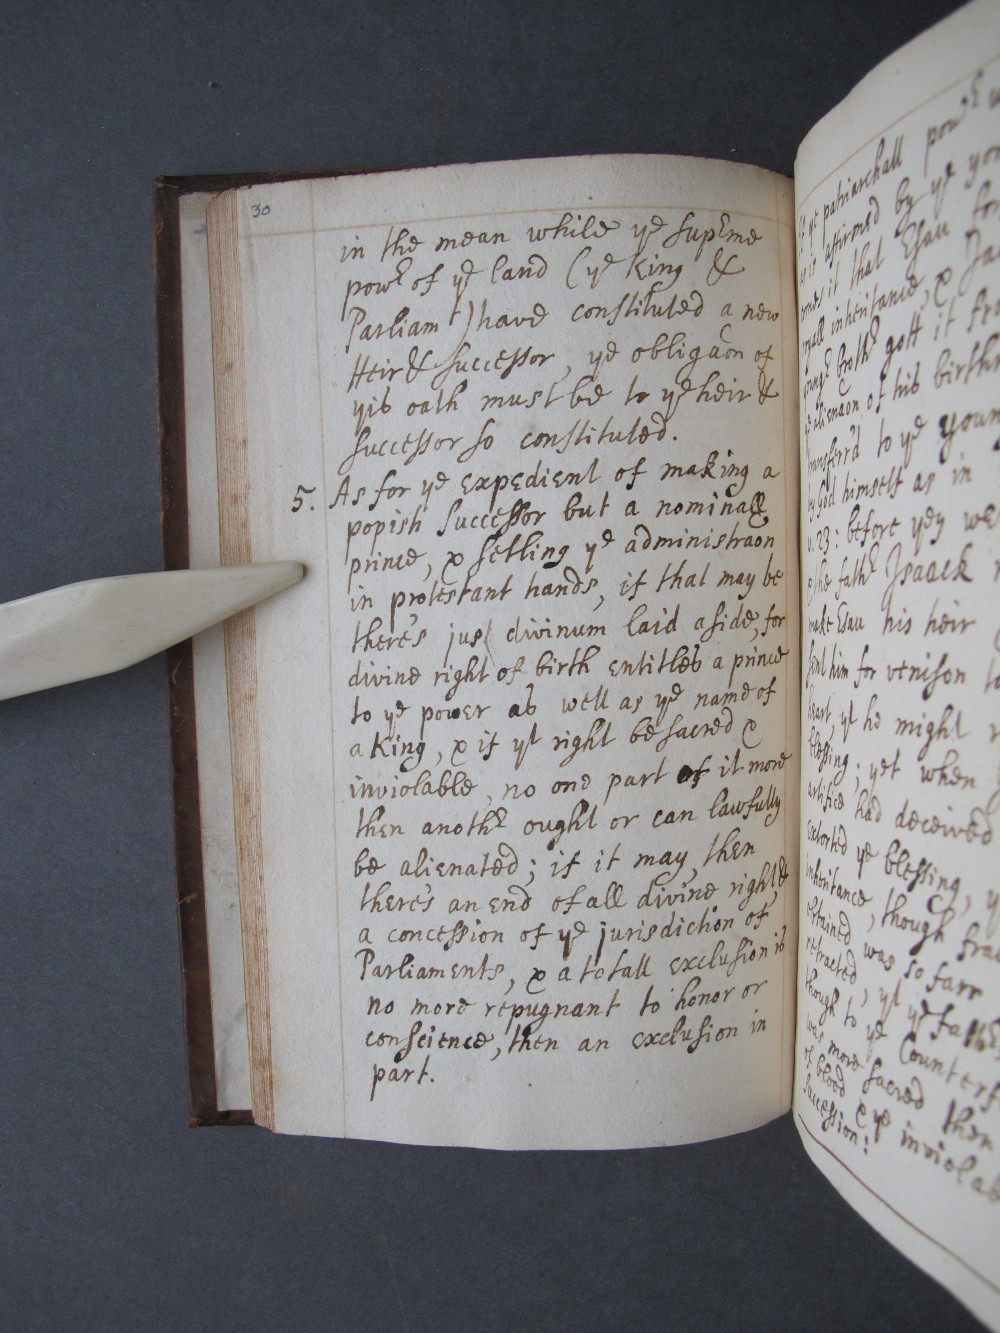 30
in the mean while ye supreme
powr of ye land (ye King &
Parliamt) have constituted a new
Heir & successor, ye obligaōn of
yis oath must be to ye heir &
successor so constituted.
5. As for ye expedient of making a
popish successor but a nominall
prince, & setling ye administraon
in protestant hands, if that may be
there's jus divinum laid aside, for
divine right of birth entitles a prince
to ye power as well as ye name of
a King, & if yt right be sacred &
inviolable, no one part of it more
then anothr ought or can lawfully
be alienated; if it may, then
there's an end of all divine right, &
a concession of ye jurisdiction of
Parliaments, & a totall exclusion is
no more repugnant to honor or
conscience, then an exclusion in
part.
If ye patriarchall powr
as is affirmed by ye
it that Esau
royall inheritance, &
younger brothr gott it
ye alienaon of his
transferr'd to ye
by God himself as in
v. 23: before yey
fathr Isaack
make Esau his heir
sent him for venison
heart, yt he might
blessing; yet when
artifice had deceived
extorted ye blessing,
inheritance, though
obtained was so farr
retracted, yt ye
though to ye
was more sacred then
of blood & ye
succession: